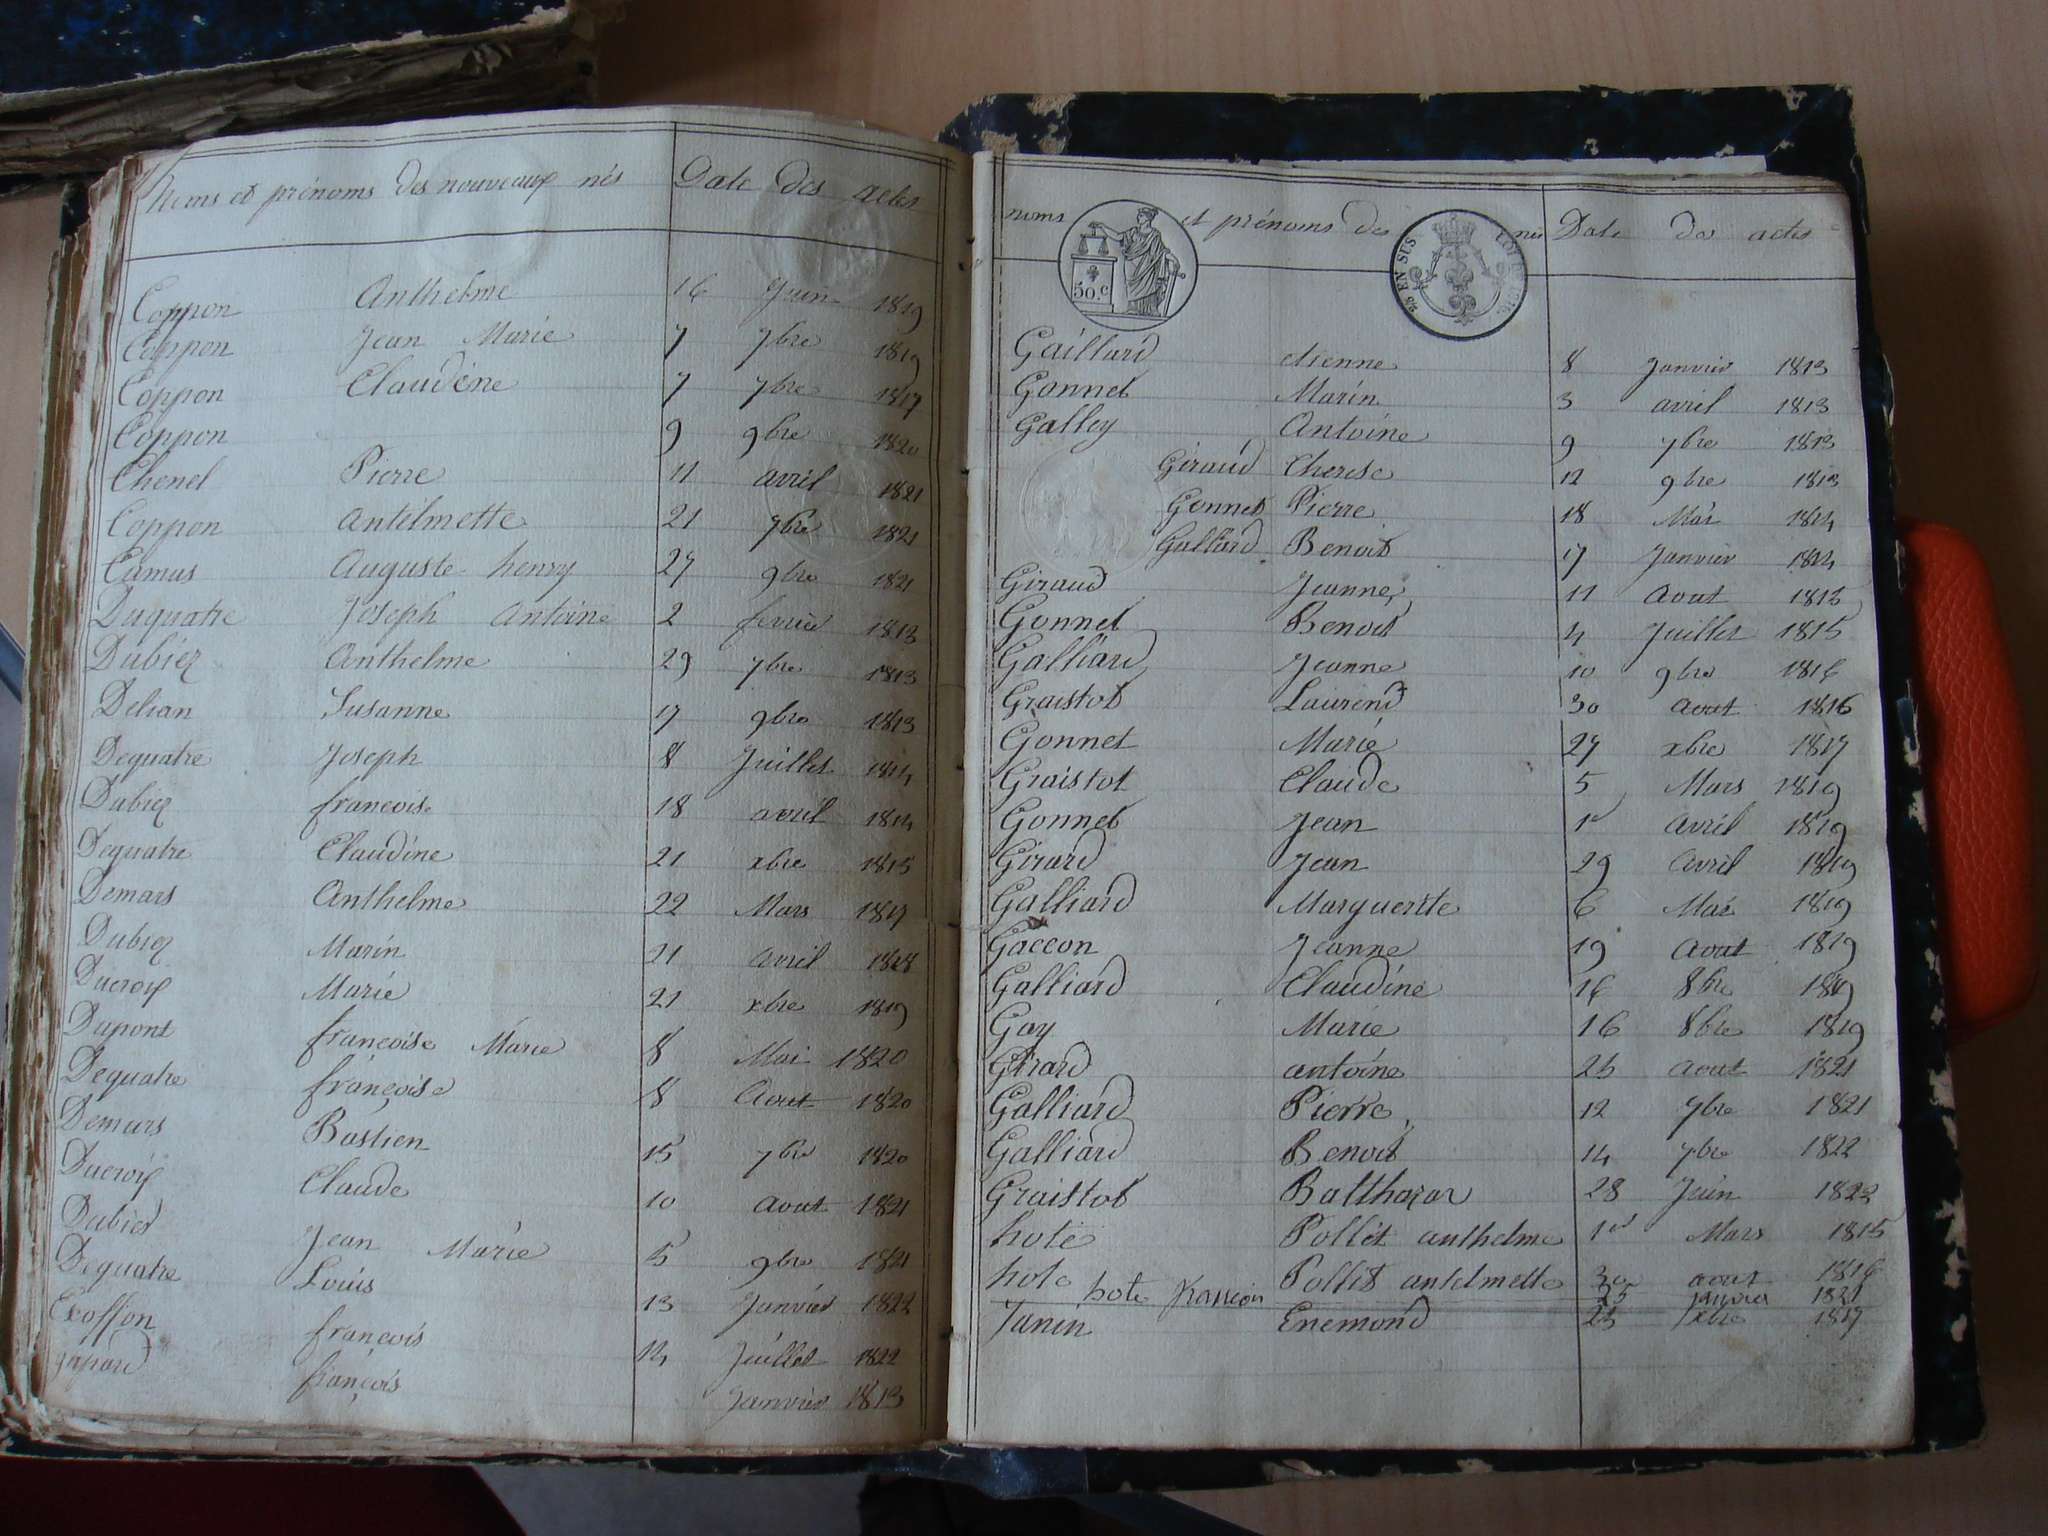 Noms et prénoms des nouveaux nés Date des actes
Coppon Anthelme 16 Juin 1819
Coppon Jean Marie 7 7bre 1819
Coppon Claudine 7 7bre 1817
Coppon 9 9bre 1820
Chenel Pierre 11 avril 1821
Coppon Antelmette 21 7bre 1821
Camus Auguste henry 27 9bre 1821
Duquatre Joseph Antoine 2 fevrier 1813
Dubiez Anthelme 29 7bre 1813
Delian Susanne 17 9bre 1813
Dequatre Joseph 8 Juillet 1814
Dubiez francois 18 avril 1814
Dequatre Claudine 21 xbre 1815
Demars Anthelme 22 Mars 1817
Dubiez Marin 21 avril 1818
Ducroix Marie 21 xbre 1819
Dupont francoise Marie 8 Mai 1820
Dequatre françoise 8 Aout 1820
Demars Bastien 15 7bre 1820
Ducroix Claude 10 aout 1821
Dubied Jean Marie 5 9bre 1821
Dequatre Louis 13 Janvier 1822
Exoffon francois 14 Juillet 1822
françois Janvier 1813
noms et prénoms des nés Date des actes
50.c
25 EN SUS
Gaillard etienne 8 Janvier 1813
Gonnet Marin 3 avril 1813
Galley Antoine 9 7bre 1813
Giraud Therese 12 9bre 1813
Gonnet Pierre 18 Mai 1814
Galliard Benoit 17 Janvier 1814
Giraud Jeanne 11 Aout 1815
Gonnet Benoit 4 Juillet 1815
Galliard Jeanne 10 9bre 1816
Graistot Laurend 30 Aout 1816
Gonnet Marie 27 xbre 1817
Graistot Claude 5 Mars 1819
Gonnet Jean 1er Avril 1819
Girard Jean 29 Avril 1819
Galliard Marguerite 6 Mai 1819
Gaccon Jeanne 19 Aout 1819
Galliard Claudine 16 8bre 1819
Gay Marie 16 8bre 1819
Girard antoine 25 Aout 1821
Galliard Pierre 12 7bre 1821
Galliard Benoit 14 7bre 1822
Graistot Balthazar 28 Juin 1822
hote Pollet anthelme 1er Mars 1815
hote Pollet antelmette 30 aout 1816
hote francois 25 janvier 1821
Janin Enemond 25 xbre 1817